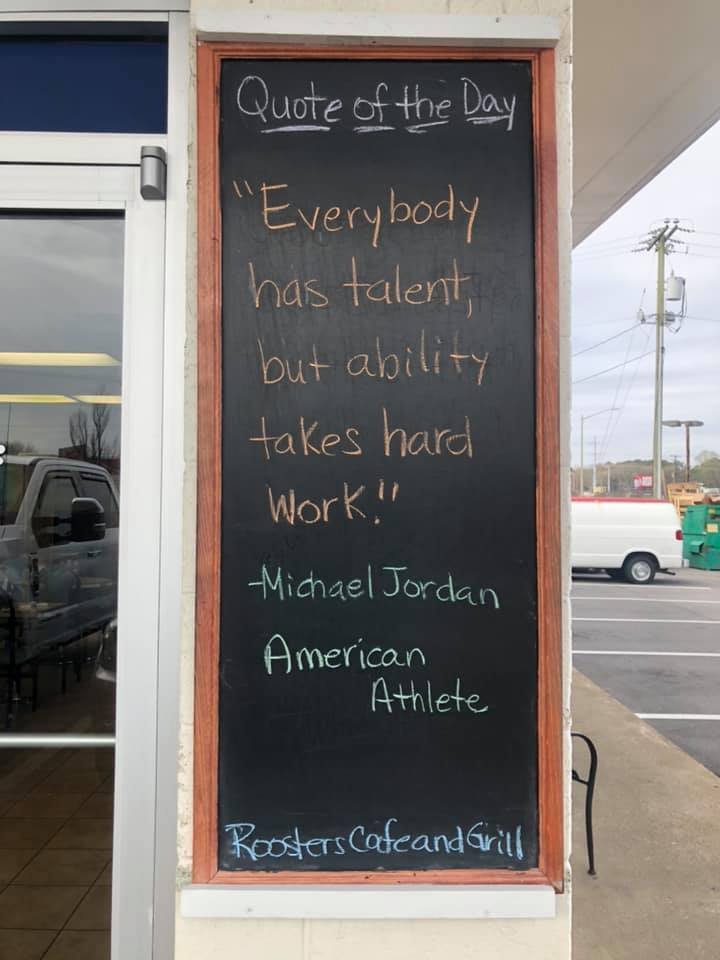 Quote of the Day
"Everybody
has talent,
but ability
takes hard
work."
-Michael Jordan
American
Athlete
Roosters Cafe and Grill